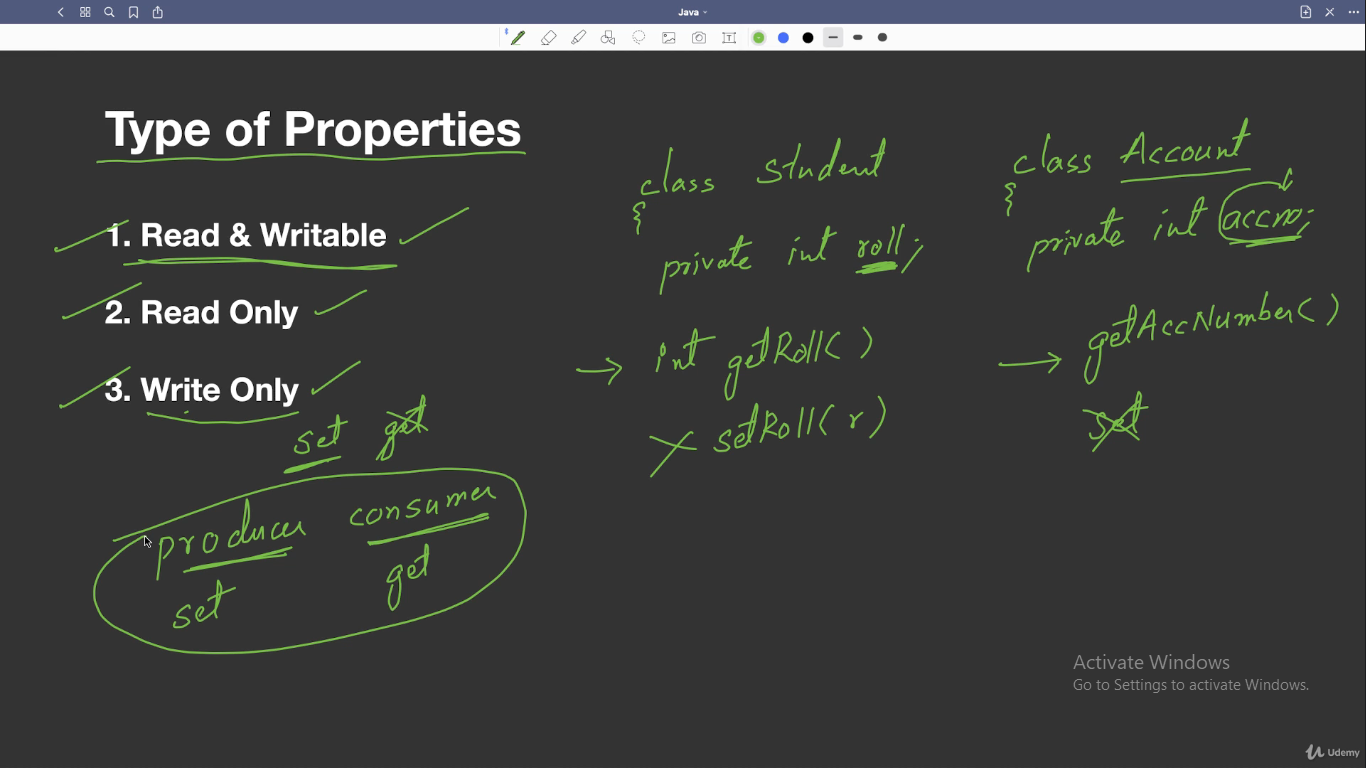 Java
Type of Properties
1. Read & Writable
2. Read Only
3. Write Only
set get
producer consumer
set get
class Student
{
private int roll;
int getRoll( )
setRoll( r )
class Account
{
private int accno;
getAccNumber( )
set
Activate Windows
Go to Settings to activate Windows.
Udemy